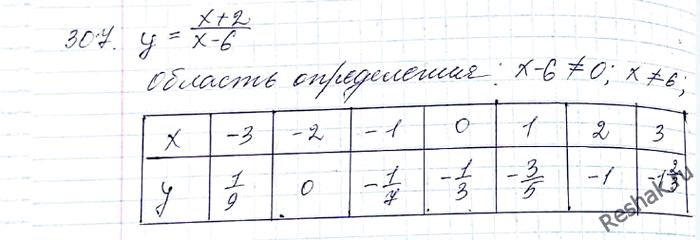 307. y = \frac{x+2}{x-6}
область определения: x-6≠0; x≠6;
x | -3 | -2 | -1 | 0 | 1 | 2 | 3
y | 1/9 | 0 | -1/7 | -1/3 | -3/5 | -1 | -1 2/3
Reshak.ru